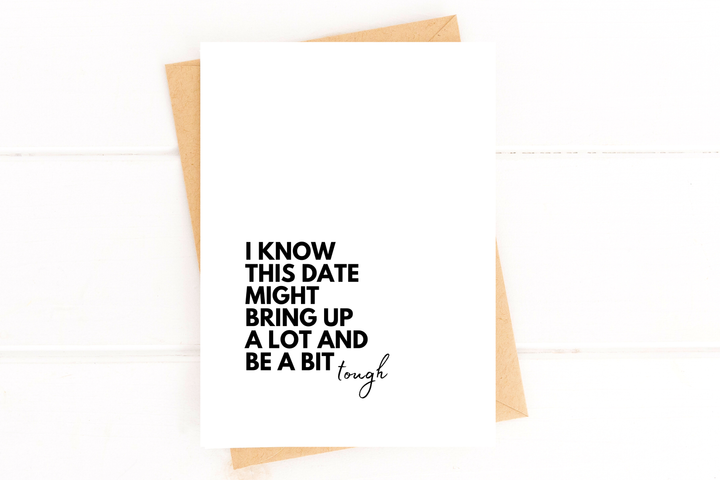 I KNOW
THIS DATE
MIGHT
BRING UP
A LOT AND
BE A BIT tough